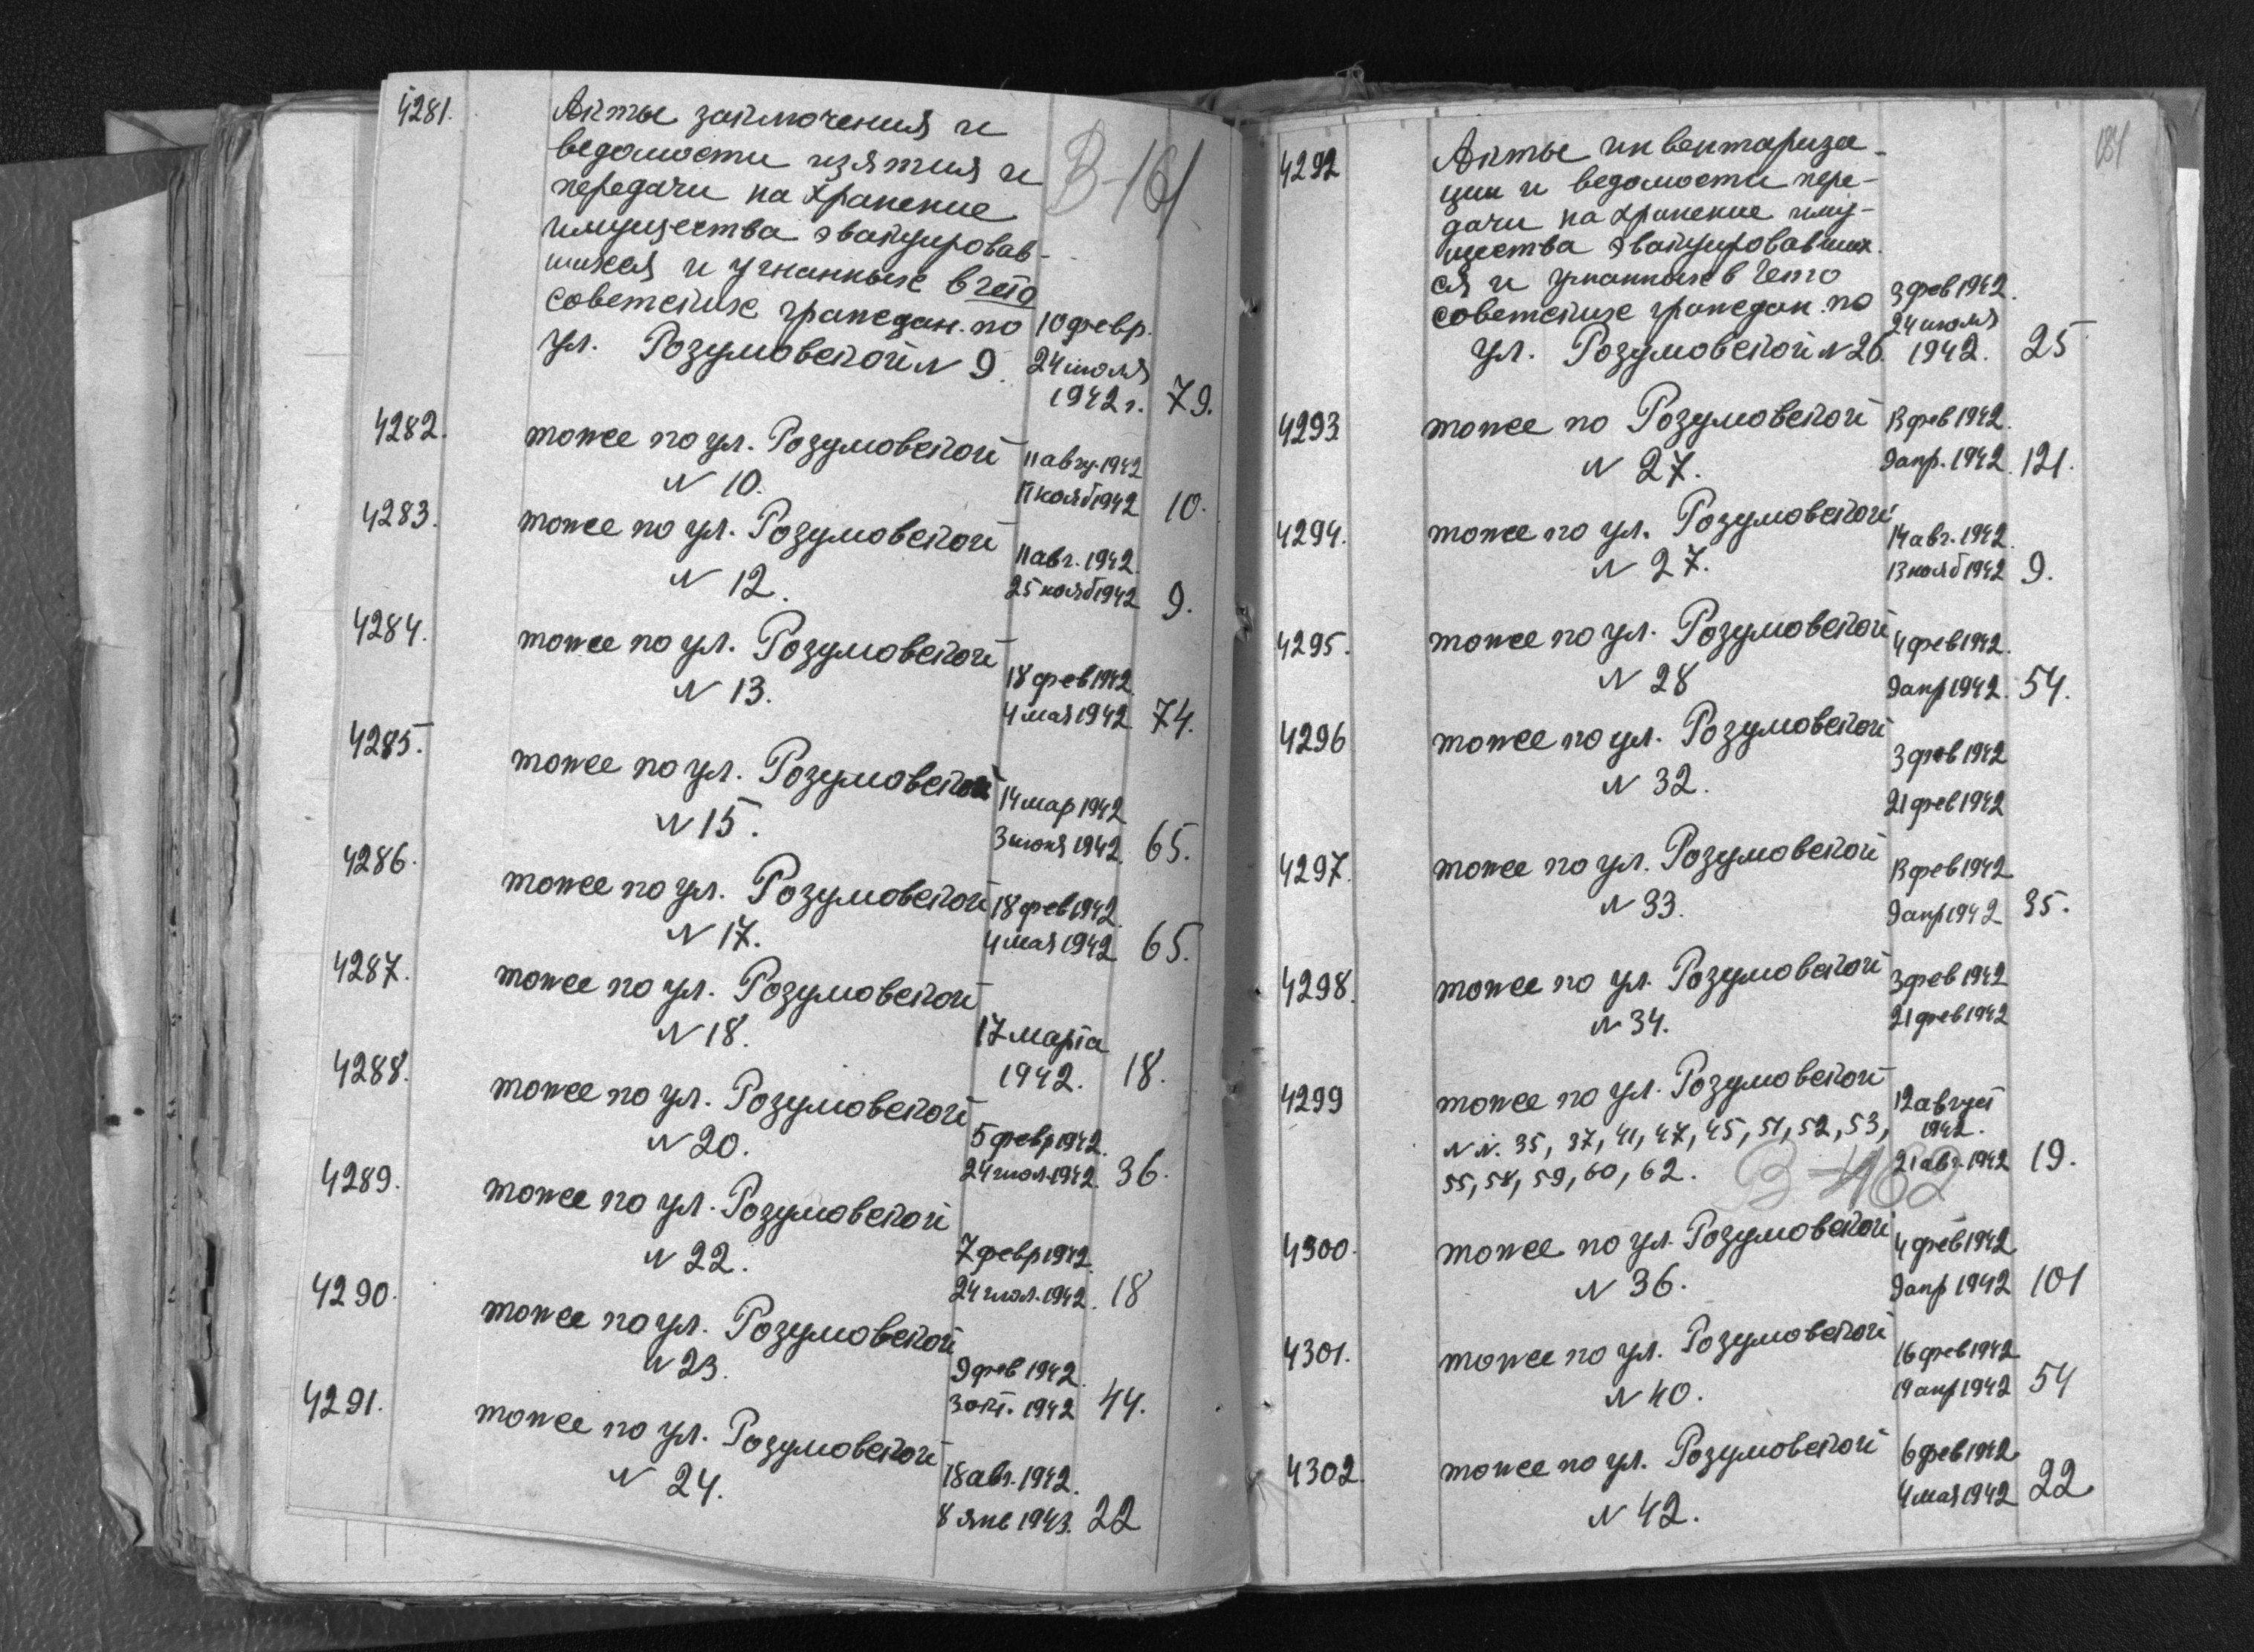 4281.
Акты заключения и
ведомости изятия и
передачи на хранение
имущества эвакуировав-
шихся и угнанных в гето
советских граждан по
ул. Розумовской N 9.
10 февр.
24 июля
1942 г.
79.
В-161
4282.
тоже по ул. Розумовской
N 10.
11 авгу. 1942
17 нояб 1942
10.
4283.
тоже по ул. Розумовской
N 12.
11 авг. 1942.
25 нояб 1942
9.
4284.
тоже по ул. Розумовской
N 13.
18 фев 1942
4 мая 1942
74.
4285.
тоже по ул. Розумовской
N 15.
14 мар 1942
3 июня 1942.
65.
4286.
тоже по ул. Розумовской
N 17.
18 фев 1942.
4 мая 1942
65.
4287.
тоже по ул. Розумовской
N 18.
17 марта
1942.
18.
4288.
тоже по ул. Розумовской
N 20.
5 февр 1942.
24 июл. 1942.
36.
4289.
тоже по ул. Розумовской
N 22.
7 февр 1942.
24 июл. 1942.
18
4290.
тоже по ул. Розумовской
N 23.
9 фев 1942.
3 окт. 1942
44.
4291.
тоже по ул. Розумовской
N 24.
18 авг. 1942.
8 янв 1943.
22
181
4292
Акты инвентариза-
ции и ведомости пере-
дачи на хранение иму-
щества эвакуировавших-
ся и угнанных в гето
советских граждан по
ул. Розумовской N 26.
3 фев 1942.
24 июля
1942.
25
4293
тоже по Розумовской
N 27.
13 фев 1942.
9 апр. 1942.
121.
4294.
тоже по ул. Розумовской
N 27.
14 авг. 1942.
13 нояб 1942
9.
4295.
тоже по ул. Розумовской
N 28
4 фев 1942.
9 апр 1942.
54.
4296
тоже по ул. Розумовской
N 32.
3 фев 1942
21 фев 1942
4297.
тоже по ул. Розумовской
N 33.
13 фев 1942
9 апр 1942
35.
4298.
тоже по ул. Розумовской
N 34.
3 фев 1942
21 фев 1942
4299
тоже по ул. Розумовской
N N. 35, 37, 41, 47, 45, 51, 52, 53,
55, 58, 59, 60, 62.
12 август
1942.
21 авг. 1942
19.
В-162
4300.
тоже по ул. Розумовской
N 36.
4 фев 1942
9 апр 1942
101
4301.
тоже по ул. Розумовской
N 40.
16 фев 1942
19 апр 1942
54
4302.
тоже по ул. Розумовской
N 42.
6 фев 1942
4 мая 1942
22